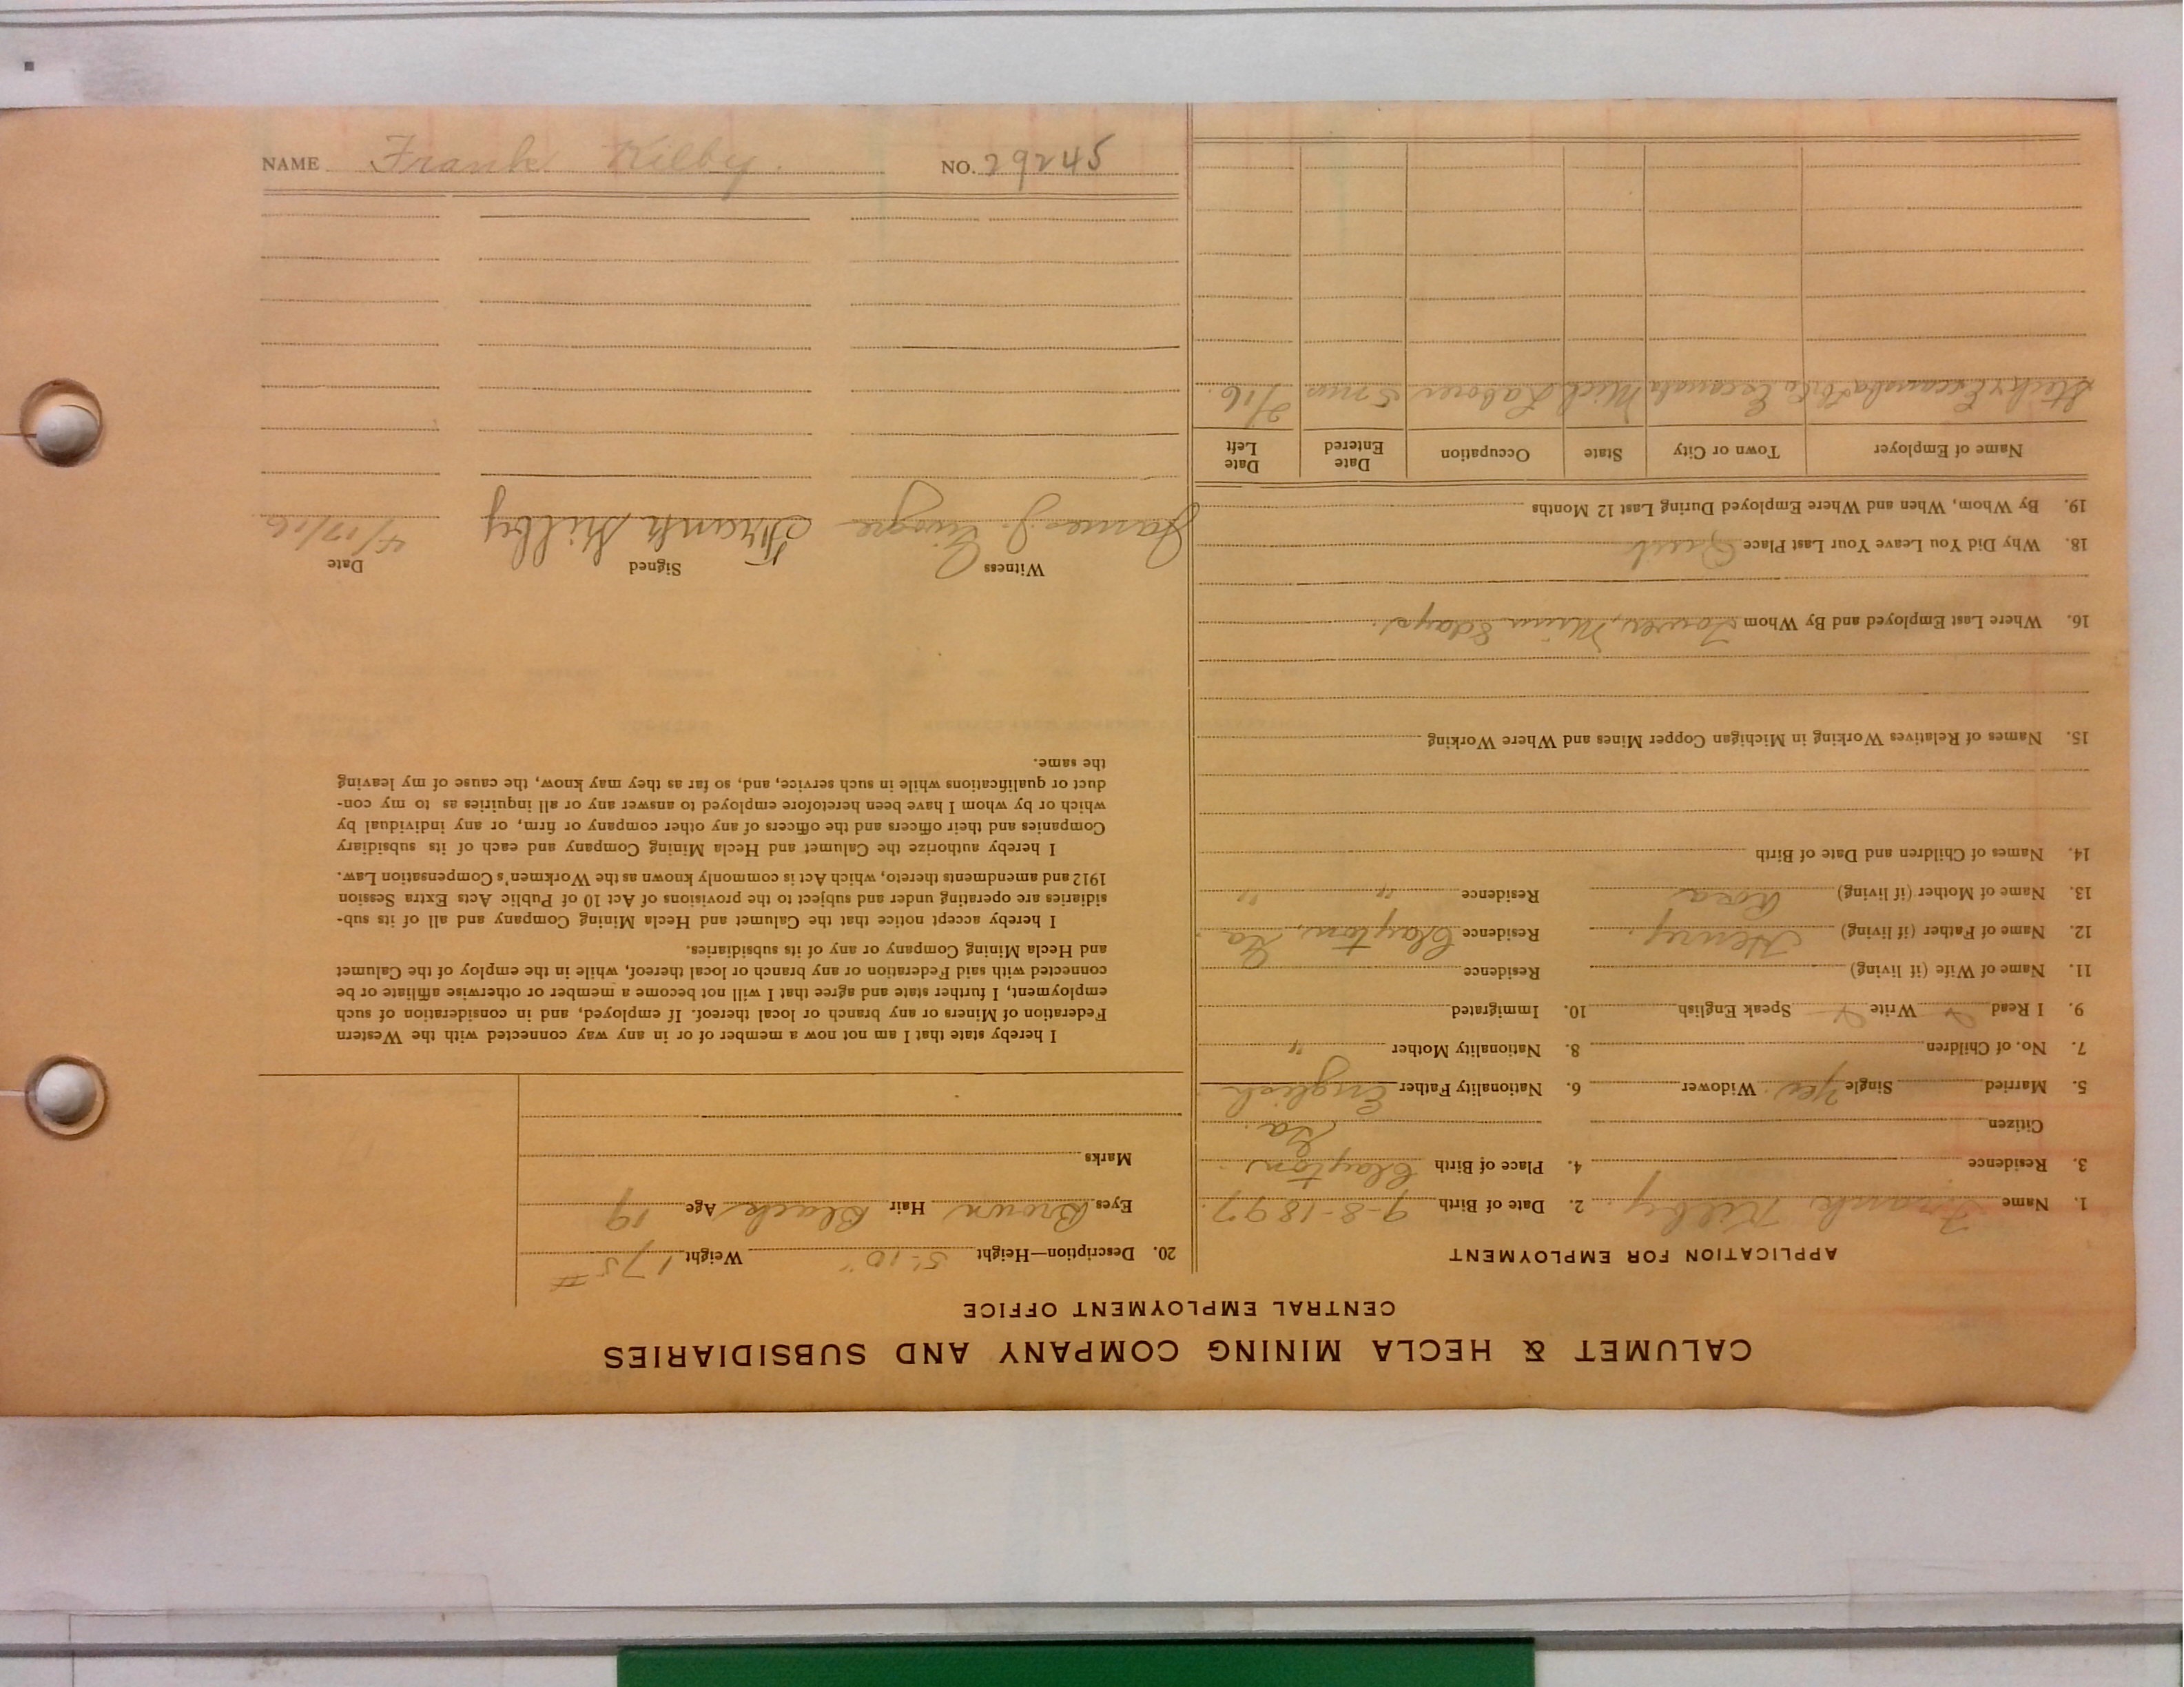 CALUMET & HECLA MINING COMPANY AND SUBSIDIARIES
CENTRAL EMPLOYMENT OFFICE
APPLICATION FOR EMPLOYMENT
1. Name Frank Kilby. 2. Date of Birth 9-8-1897.
3. Residence 4. Place of Birth Clayton
Citizen Ga.
5. Married Single Yes. Widower 6. Nationality Father English
7. No. of Children 8. Nationality Mother "
9. I Read Write Speak English 10. Immigrated
11. Name of Wife (if living) Residence
12. Name of Father (if living) Henry. Residence Clayton, Ga
13. Name of Mother (if living) Rosa Residence " "
14. Names of Children and Date of Birth
15. Names of Relatives Working in Michigan Copper Mines and Where Working
16. Where Last Employed and By Whom Tower, Minn 8 days.
18. Why Did You Leave Your Last Place Quit
19. By Whom, When and Where Employed During Last 12 Months
Name of Employer Town or City State Occupation Date Entered Date Left
Escanaba Escanaba Mich Laborer 5 mos 2/16.
20. Description—Height 5'-10" Weight 175 #
Eyes Brown Hair Black Age 19
Marks
I hereby state that I am not now a member of or in any way connected with the Western
Federation of Miners or any branch or local thereof. If employed, and in consideration of such
employment, I further state and agree that I will not become a member or otherwise affiliate or be
connected with said Federation or any branch or local thereof, while in the employ of the Calumet
and Hecla Mining Company or any of its subsidiaries.
I hereby accept notice that the Calumet and Hecla Mining Company and all of its sub-
sidiaries are operating under and subject to the provisions of Act 10 of Public Acts Extra Session
1912 and amendments thereto, which Act is commonly known as the Workmen's Compensation Law.
I hereby authorize the Calumet and Hecla Mining Company and each of its subsidiary
Companies and their officers and the officers of any other company or firm, or any individual by
which or by whom I have been heretofore employed to answer any or all inquiries as to my con-
duct or qualifications while in such service, and, so far as they may know, the cause of my leaving
the same.
Witness Signed Date
James J. Frank Kilby 4/17/16
NAME Frank Kilby. NO. 29245